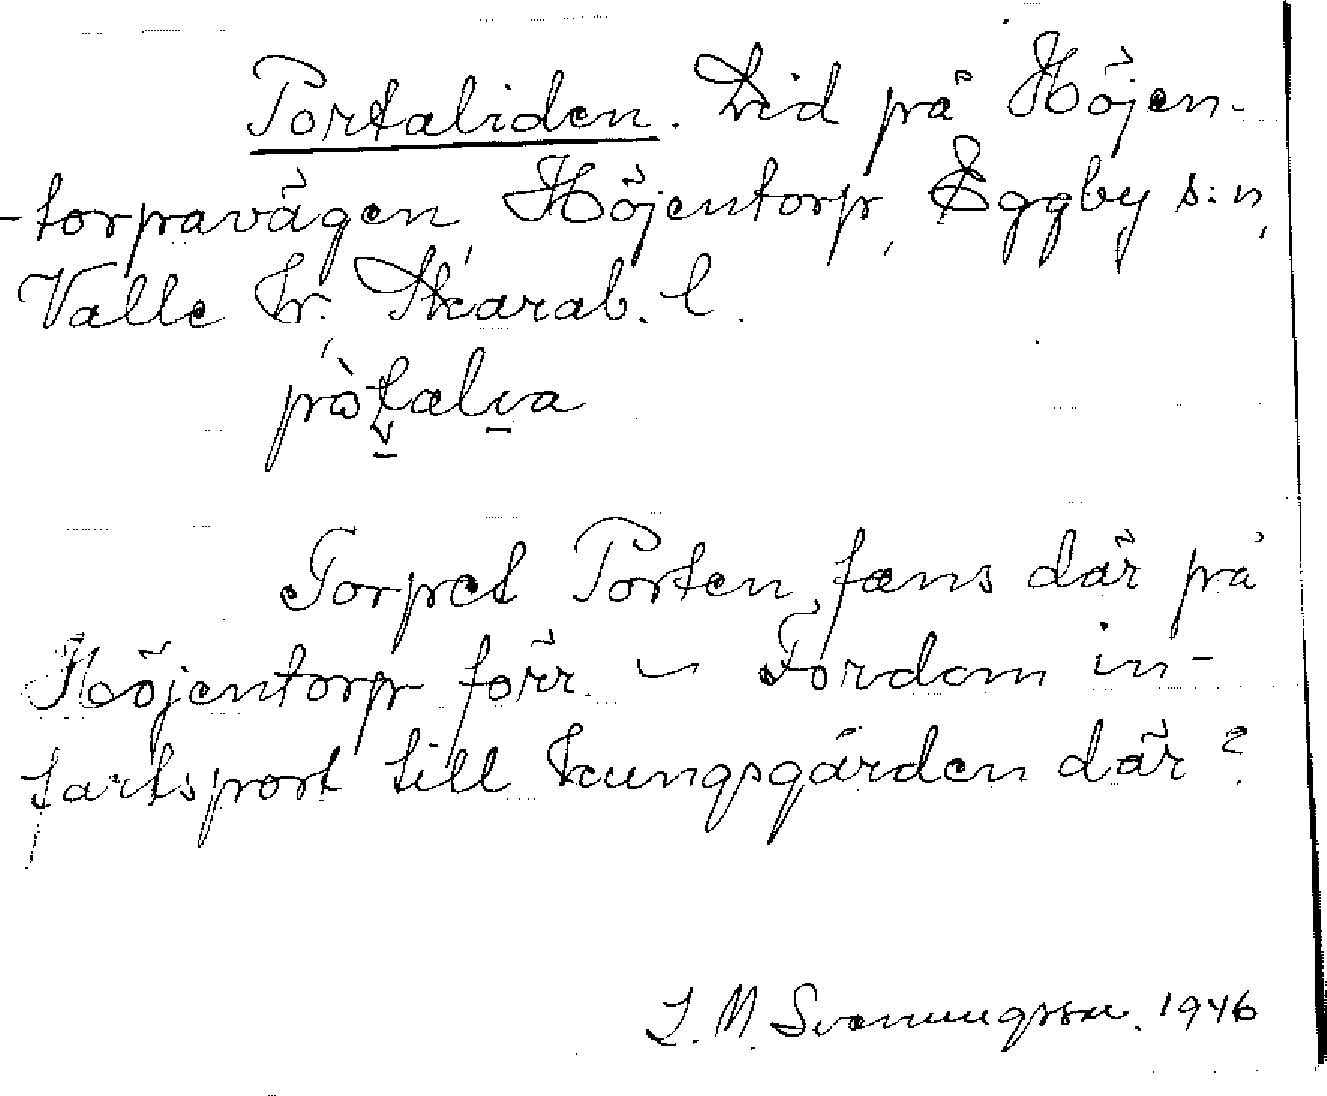 Portaliden. Lid på Höjen-
-torpavägen Höjentorp, Eggby s:n,
Valle hr. Skarab. l.
Torpet Porten fans där på
Höjentorp förr – Fordom in-
fartsport till kungsgården där?
1946